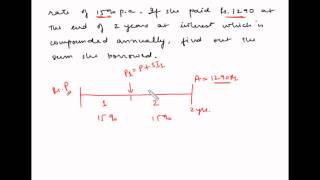 rate of 15% p.a. If she paid Rs. 1290 at
the end of 2 years at interest which is
compounded annually, find out the
sum she borrowed.
P1 = P + SI1
Rs. P
A = 1290 Rs
1
2
2 yrs.
15%
15%